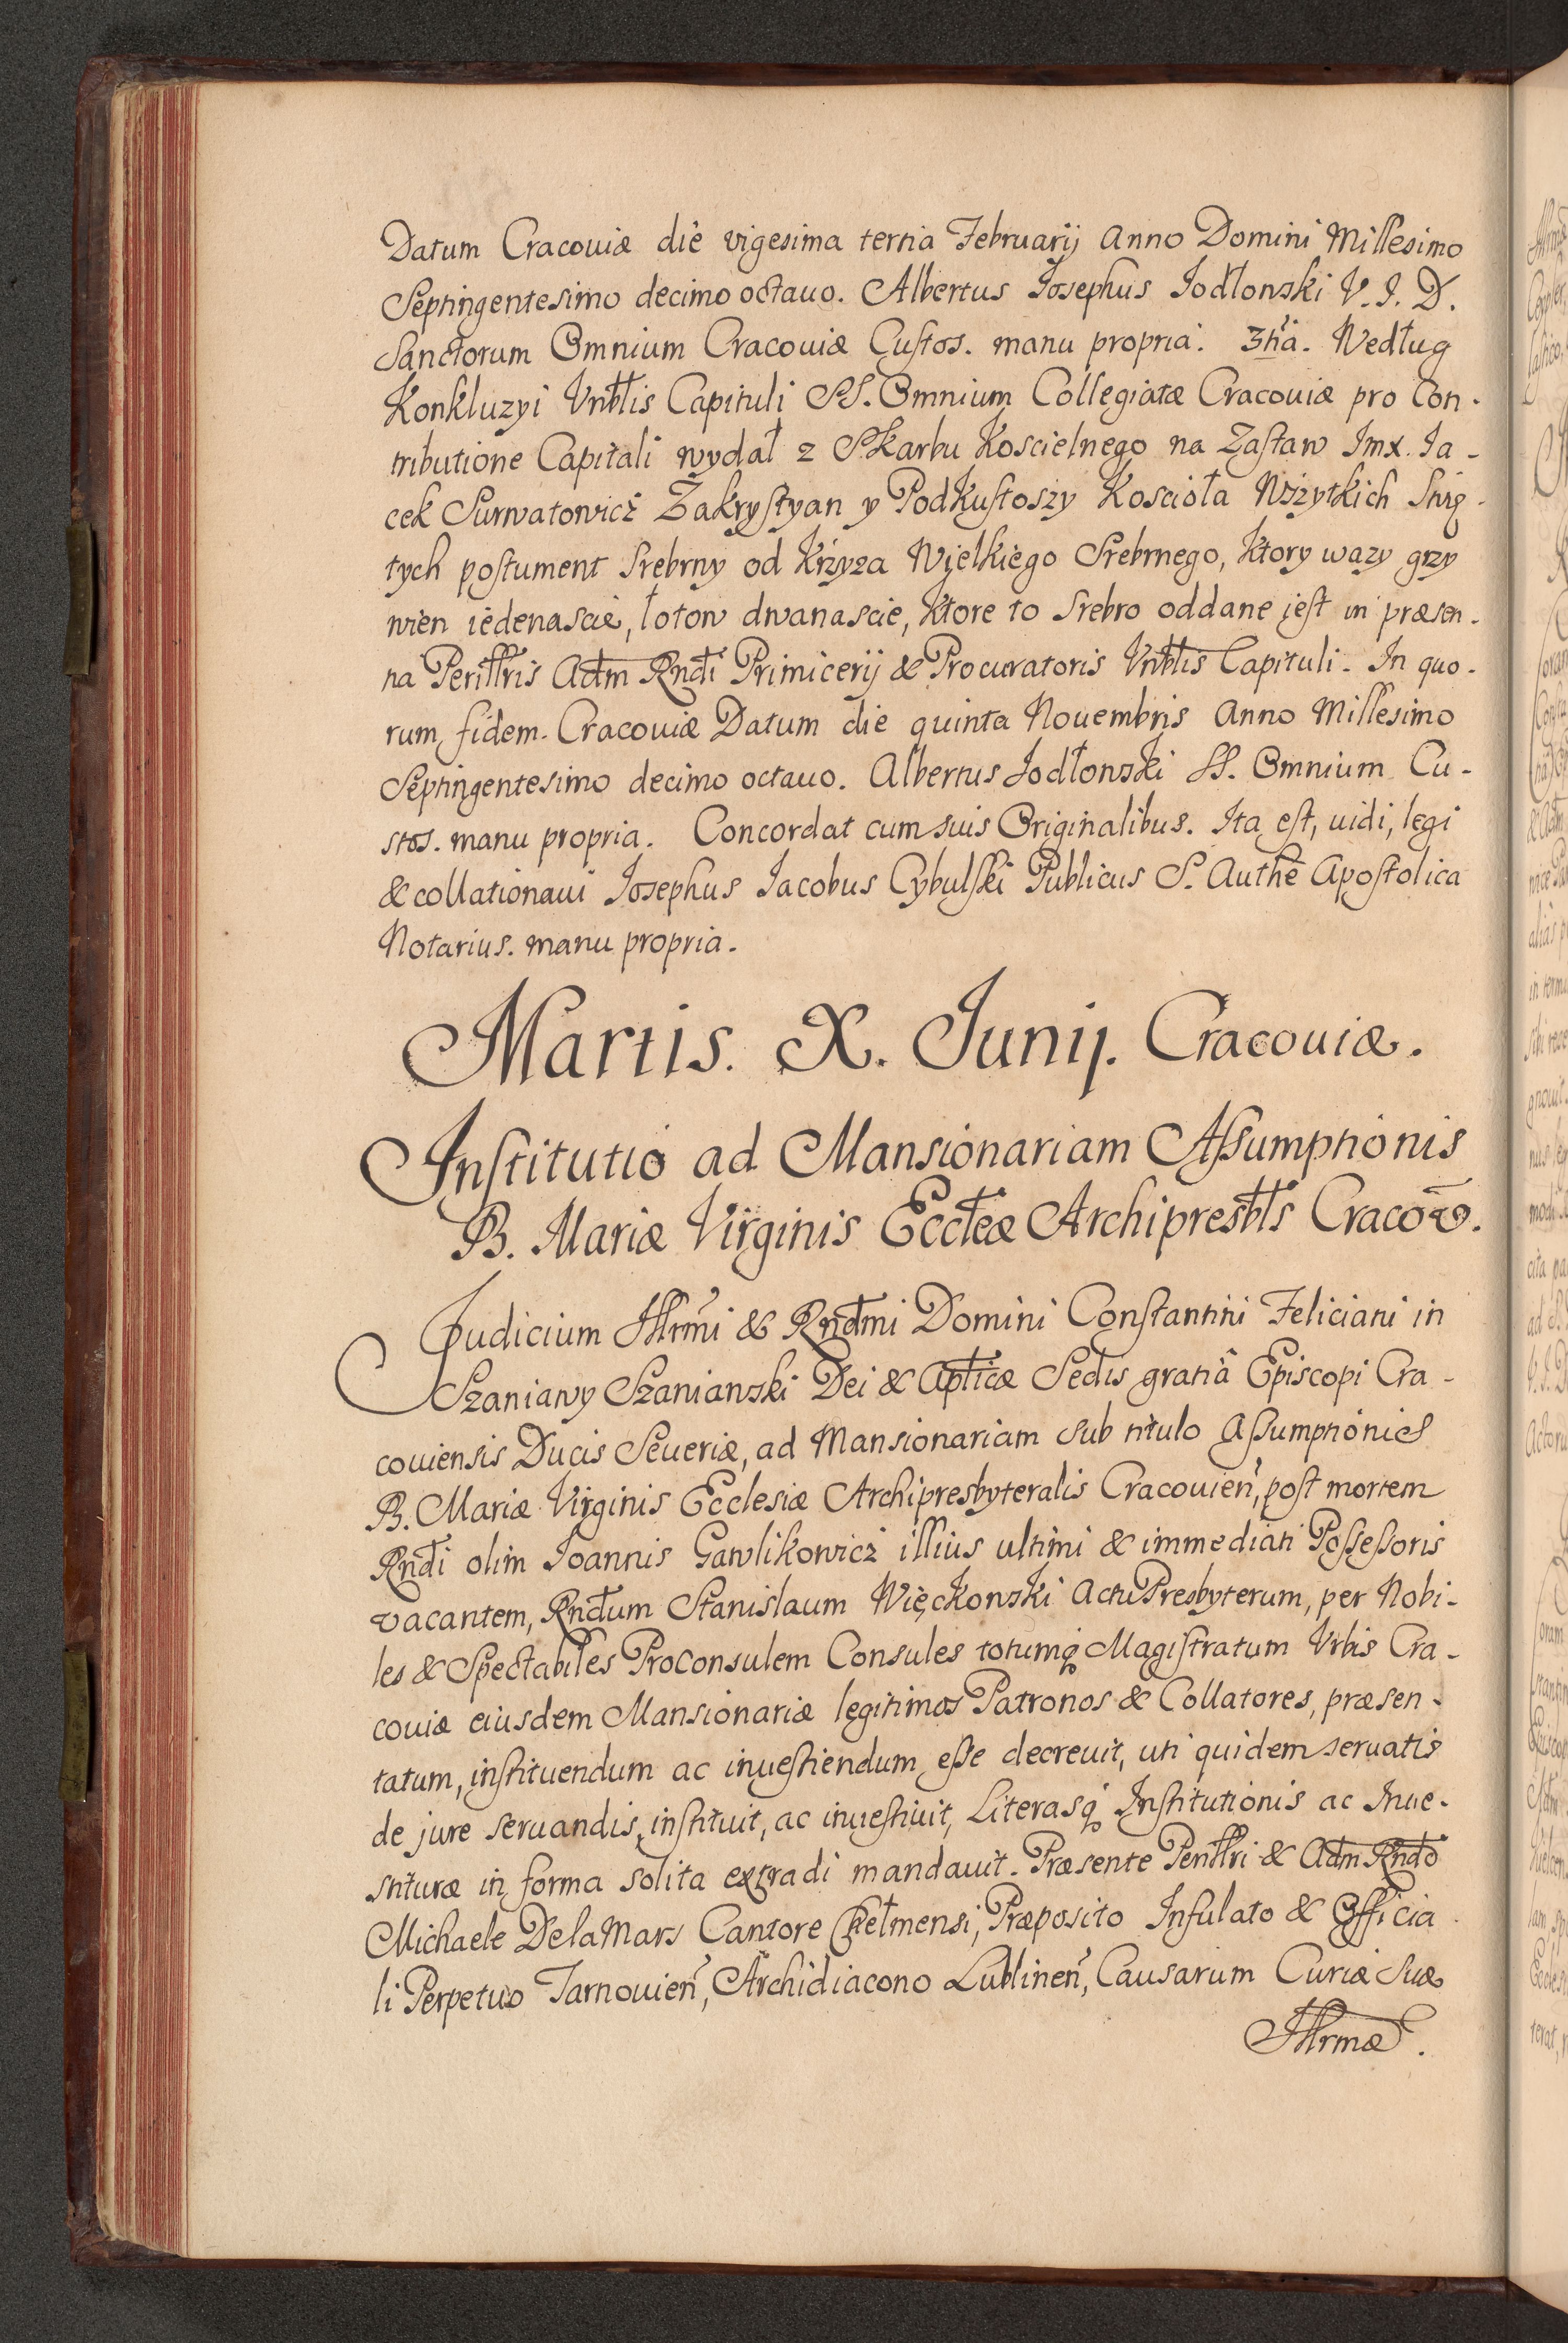 Datum Cracouiæ die vigesima tertia Februarij Anno Domini Millesimo
Septingentesimo decimo octauo. Albertus Josephus Jodłowski V. J. D.
Sanctorum Omnium Cracouiæ Custos. manu propria. 3tia. Według
Konkluzyi Vnbłis Capituli SS. Omnium Collegiatæ Cracouiæ pro Con-
tributione Capitali wydał z Skarbu Koscielnego na Zastaw Jmx. Ja-
cek Surwatowicz Zakrystyan y PodKustoszy Koscioła Wszytkich Swię-
tych postument Srebrny od Krzyza Wielkiego Srebrnego, Ktory wazy grzy
wien iedenascie, łotow dwanascie, Ktore to Srebro oddane jest in præsen-
tia Perillris Adm Rndi Primicerij & Procuratoris Vnbłis Capituli. In quo-
rum fidem. Cracouiæ Datum die quinta Nouembris Anno Millesimo
Septingentesimo decimo octauo. Albertus Jodłowski SS. Omnium Cu-
stos. manu propria. Concordat cum suis Originalibus. Ita est, uidi, legi
& collationaui Josephus Jacobus Cybulski Publicus S. Authe Apostolica
Notarius. manu propria.
Martis. X. Junij. Cracouiæ.
Institutio ad Mansionariam Assumptionis
B. Mariæ Virginis Eccleæ Archipresbtls Cracov.
Judicium Illrmi & Rndmi Domini Constantini Feliciani in
Szaniawy Szaniawski Dei & Aplicæ Sedis gratiâ Episcopi Cra-
couiensis Ducis Seueriæ, ad Mansionariam sub titulo Assumptionis
B. Mariæ Virginis Ecclesiæ Archipresbyteralis Cracouien, post mortem
Rndi olim Joannis Gawlikowicz illius ultimi & immediati Possessoris
vacantem, Rndum Stanislaum Więckowski Actu Presbyterum, per Nobi-
les & Spectabiles Proconsulem Consules totumq Magistratum Vrbis Cra-
couiæ eiusdem Mansionariæ legitimos Patronos & Collatores, præsen-
tatum, instituendum ac inuestiendum esse decreuit, uti quidem seruatis
de jure seruandis, instituit, ac inuestiuit, Literasq Institutionis ac Inue-
stituræ in forma solita extradi mandauit. Præsente Perillri & Adm Rndo
Michaele DelaMars Cantore Chełmensi, Præposito Infulato & Officia
li Perpetuo Tarnouien, Archidiacono Lublinen, Causarum Curiæ Suæ
Illrmæ.